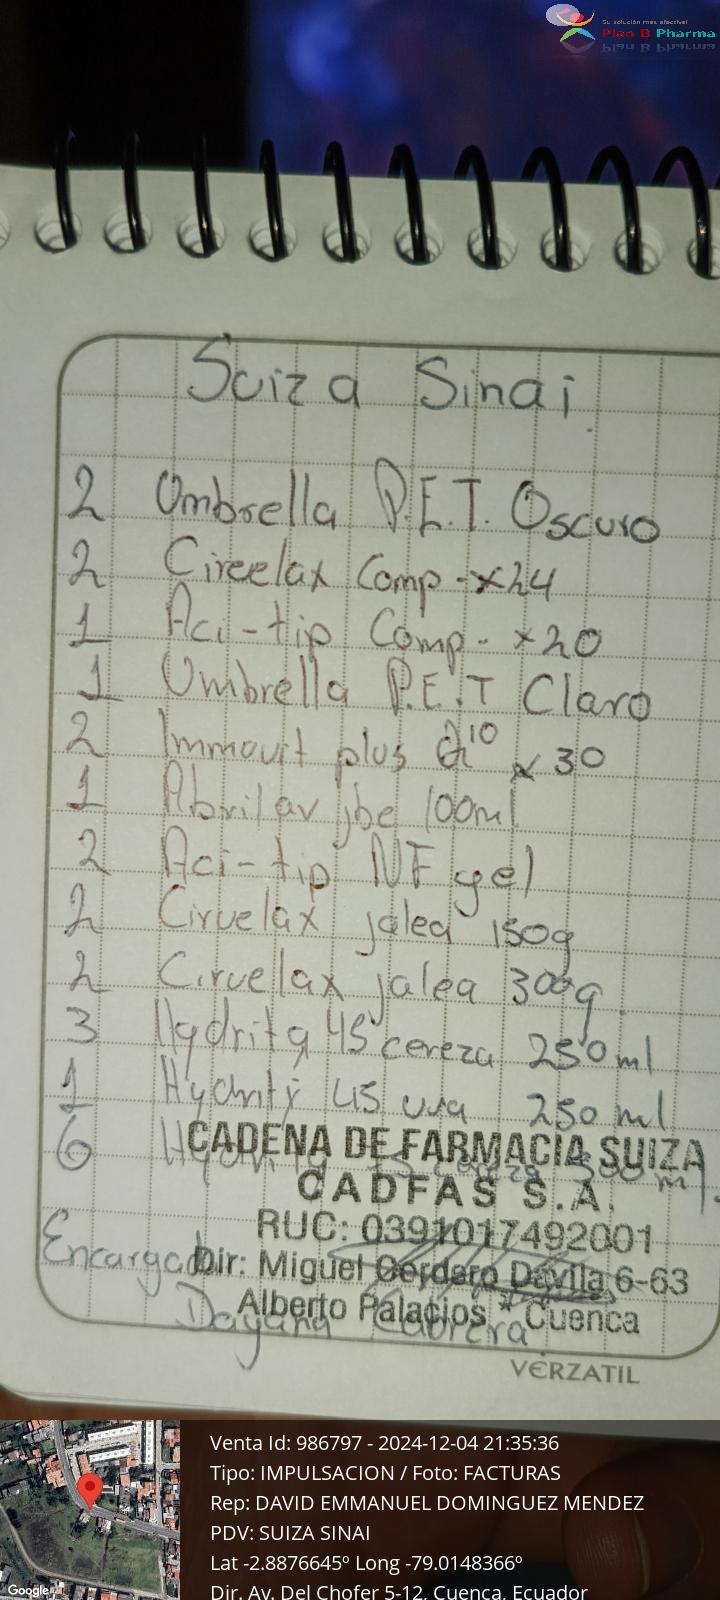 Su solución más efectiva!
Plan B Pharma
Suiza Sinai.
2 Umbrella P.E.T. Oscuro
2 Cireelax Comp - x24
1 Aci-tip Comp - x20
1 Umbrella P.E.T Claro
2 Immuvit plus Q10 x 30
1 Abrilar jbe 100ml
2 Aci-tip NF gel
2 Ciruelax jalea 150g
2 Ciruelax jalea 300g.
3 Hydrity 45 cereza 250 ml
1 Hydrity 45 uva 250 ml
6 Hydrity ml.
CADENA DE FARMACIA SUIZA
CADFAS S.A.
RUC: 0391017492001
Encargad
Dir: Miguel Cordero Davila 6-63
Alberto Palacios * Cuenca
Dayana Cabrera
VERZATIL
Venta Id: 986797 - 2024-12-04 21:35:36
Tipo: IMPULSACION / Foto: FACTURAS
Rep: DAVID EMMANUEL DOMINGUEZ MENDEZ
PDV: SUIZA SINAI
Lat -2.8876645º Long -79.0148366º
Dir. Av. Del Chofer 5-12, Cuenca, Ecuador
Google